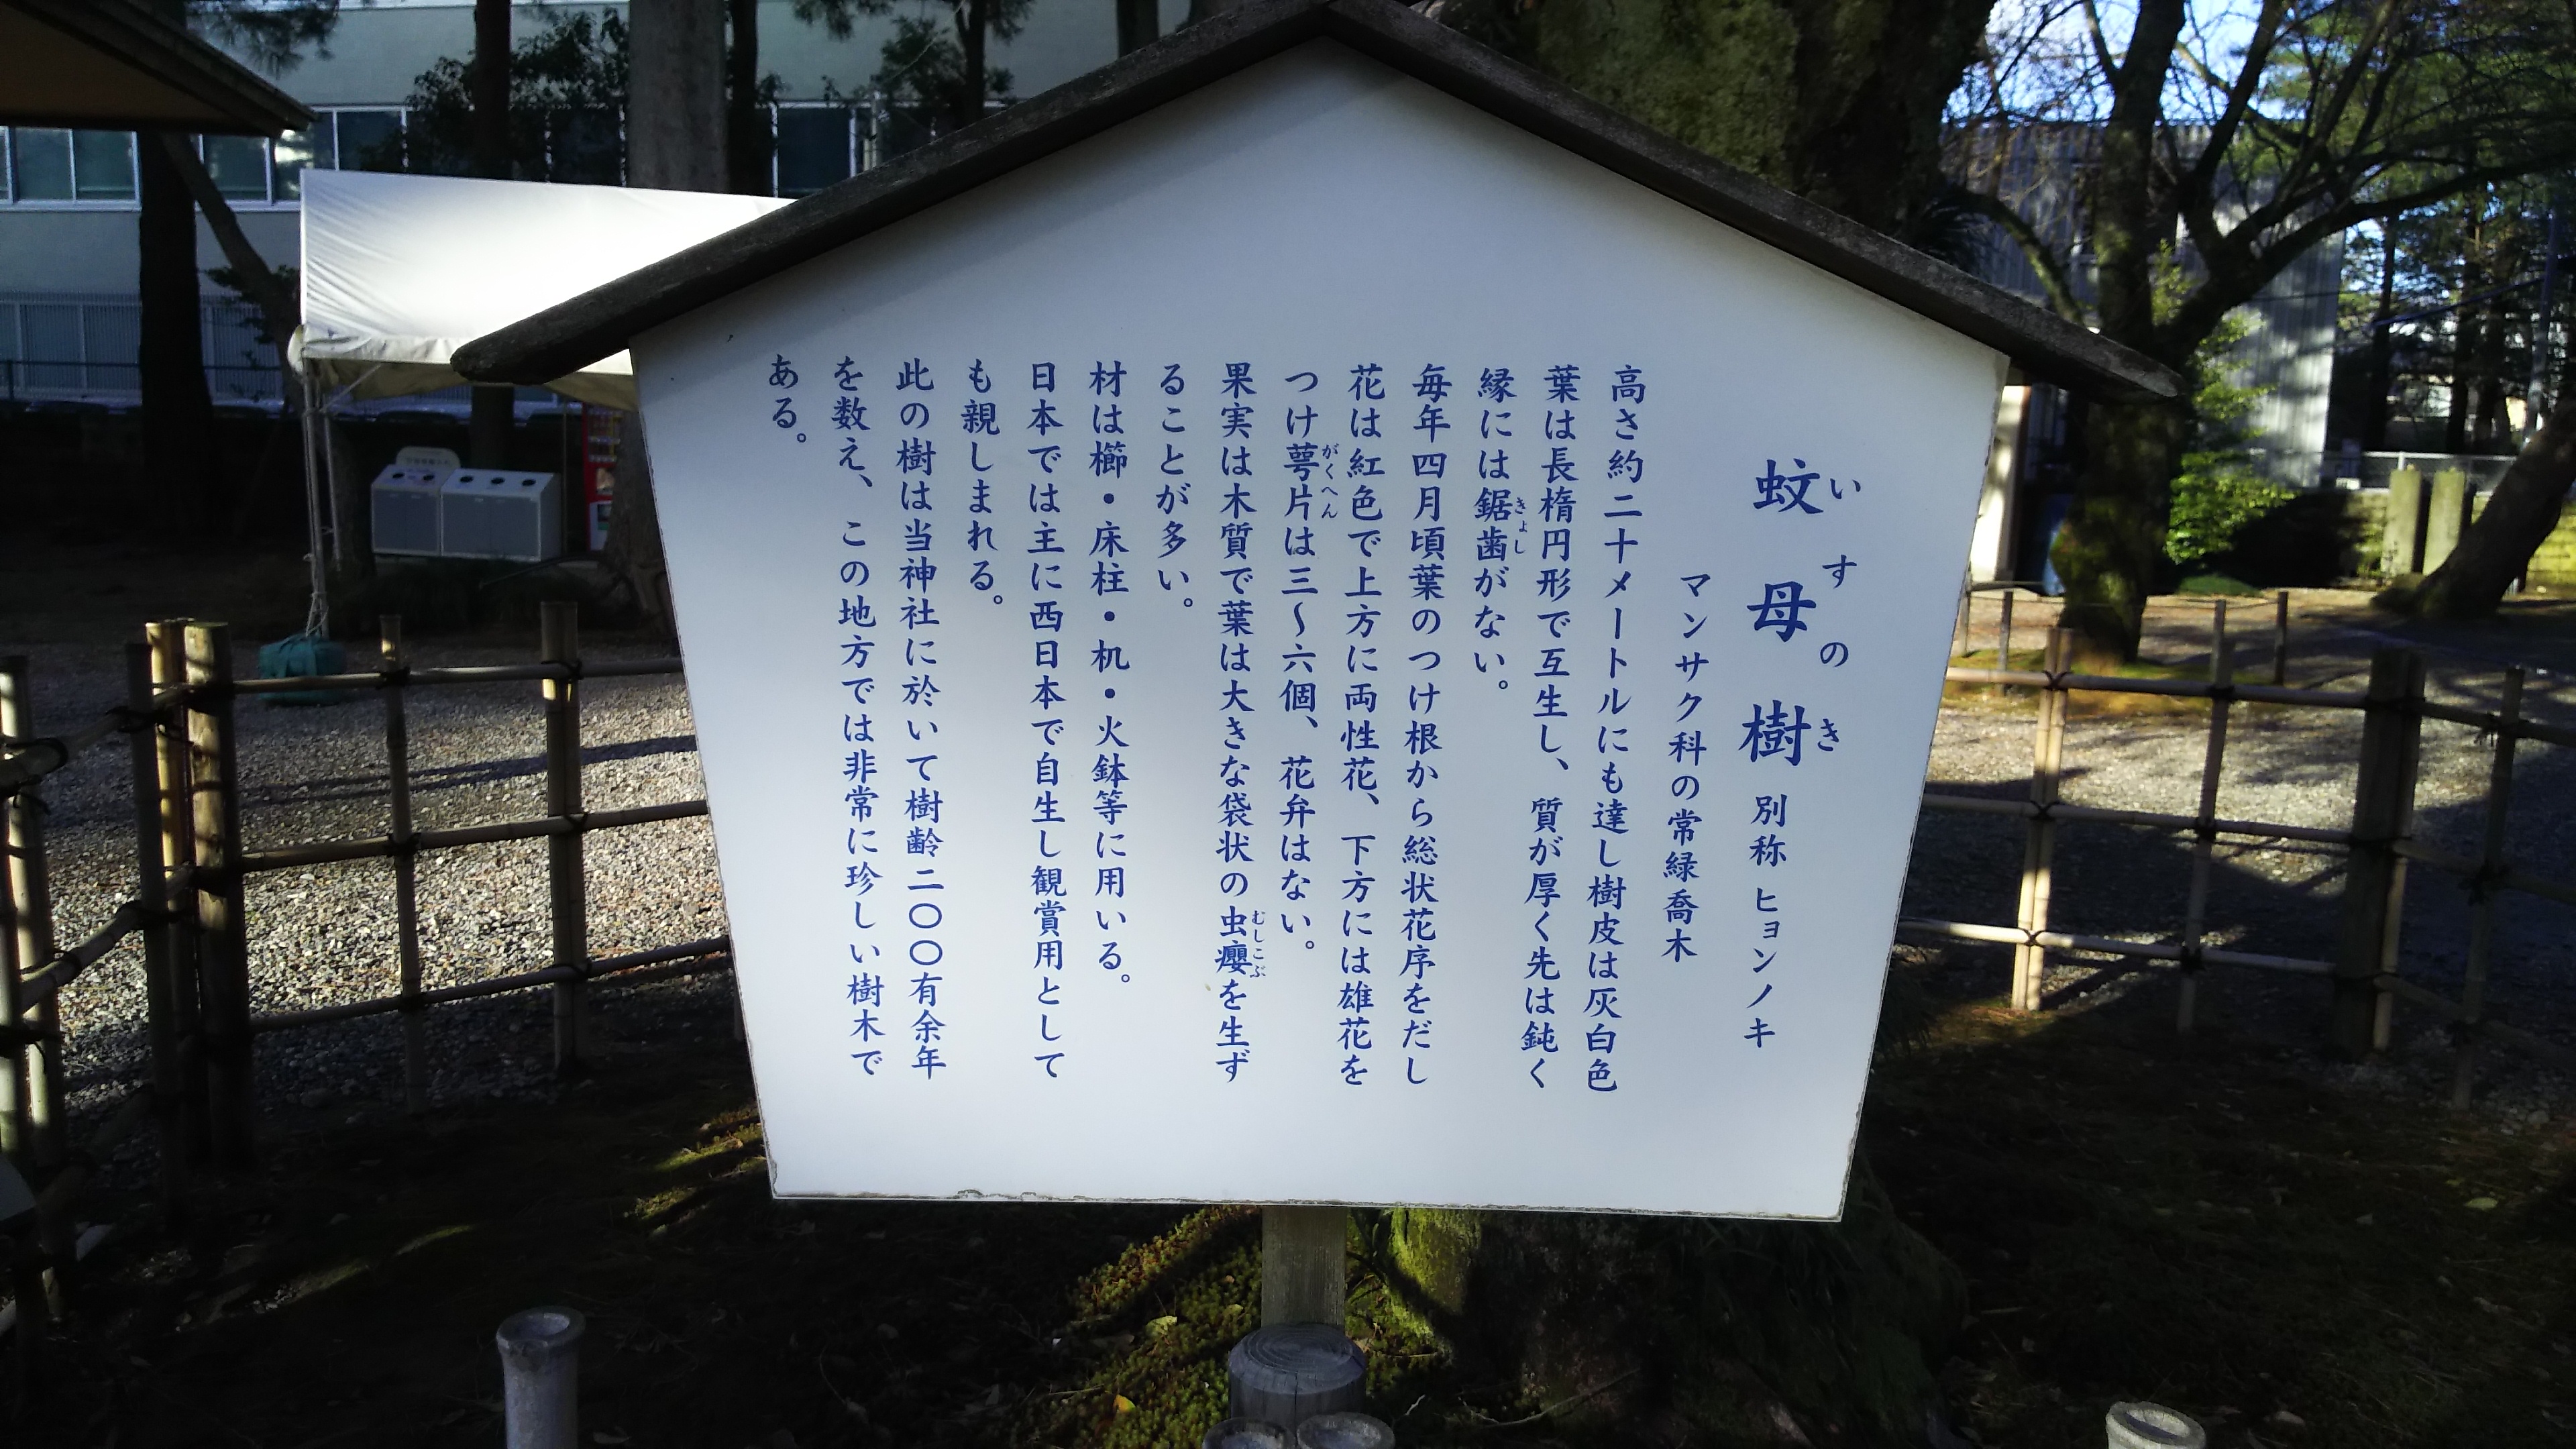 蚊母樹 別称 ヒョンノキ
いすのき
マンサク科の常緑喬木
高さ約二十メートルにも達し樹皮は灰白色
葉は長楕円形で互生し、質が厚く先は鈍く
縁には鋸歯がない。
きょし
毎年四月頃葉のつけ根から総状花序をだし
花は紅色で上方に両性花、下方には雄花を
つけ萼片は三〜六個、花弁はない。
がくへん
果実は木質で葉は大きな袋状の虫癭を生ず
むしこぶ
ることが多い。
材は櫛・床柱・机・火鉢等に用いる。
日本では主に西日本で自生し観賞用として
も親しまれる。
此の樹は当神社に於いて樹齢二〇〇有余年
を数え、この地方では非常に珍しい樹木で
ある。